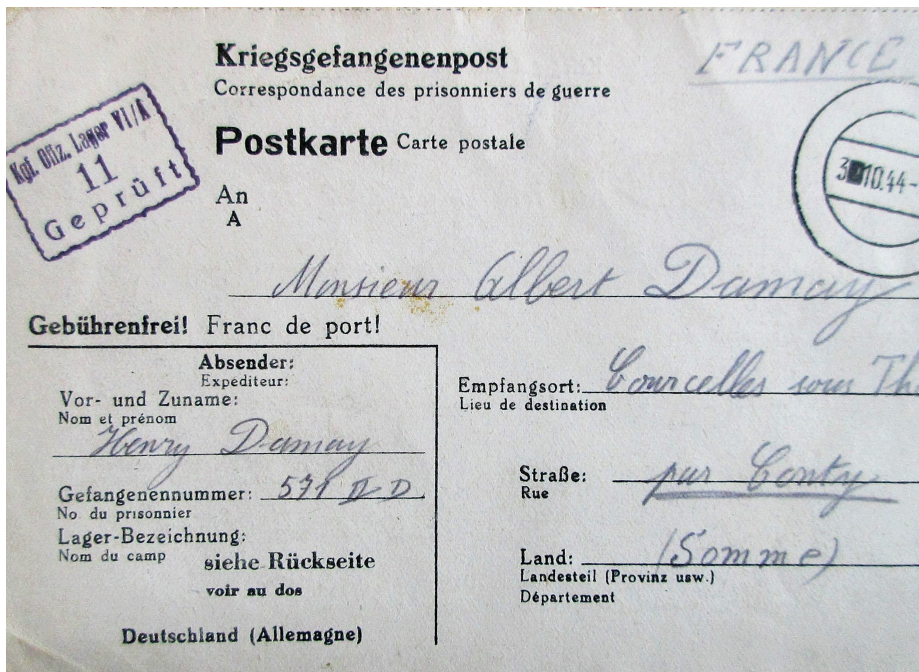 Kriegsgefangenenpost
FRANCE
Correspondance des prisonniers de guerre
Postkarte Carte postale
Kgf. Offz. Lager VI/A
11
Geprüft
10.44-
An
A
Monsieur Albert Damay
Gebührenfrei! Franc de port!
Absender:
Expéditeur:
Vor- und Zuname:
Nom et prénom
Henry Damay
Gefangenennummer: 571 II D
No. du prisonnier
Lager-Bezeichnung:
Nom du camp
siehe Rückseite
voir au dos
Deutschland (Allemagne)
Empfangsort: Courcelles sous Th
Lieu de destination
Straße: par Conty
Rue
Land: (Somme)
Landesteil (Provinz usw.)
Département